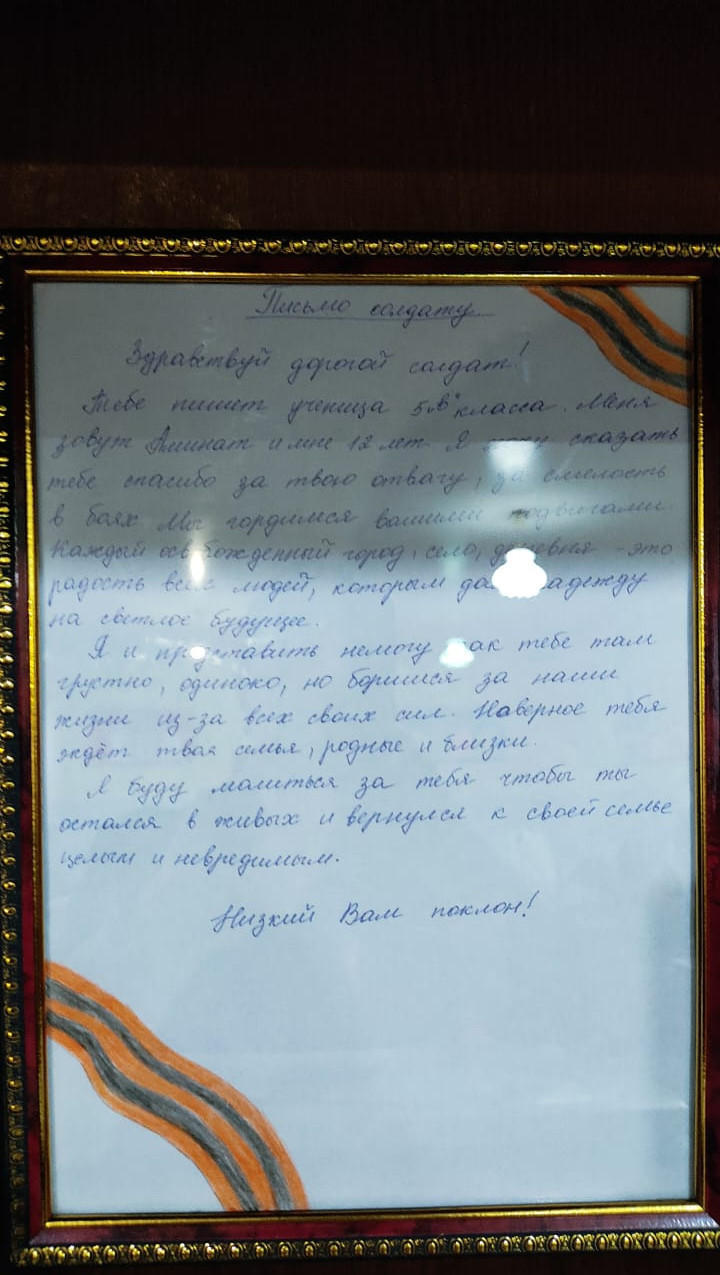 Письмо солдату
Здравствуй дорогой солдат!
Тебе пишет ученица 5 "в" класса. Меня
зовут Аминат и мне 12 лет. Я хочу сказать
тебе спасибо за твою отвагу, за смелость
в боях Мы гордимся вашими подвигами.
Каждый освобожденный город, село, деревня - это
радость всех людей, которым надежду
на светлое будущее.
Я и представить немогу как тебе там
грустно, одиноко, но боришся за наши
жизни из-за всех своих сил. Наверное тебя
ждёт твоя семья, родные и близки.
Я буду молиться за тебя чтобы ты
остался в живых и вернулся к своей семье
целым и невредимым.
Низкий Вам поклон!